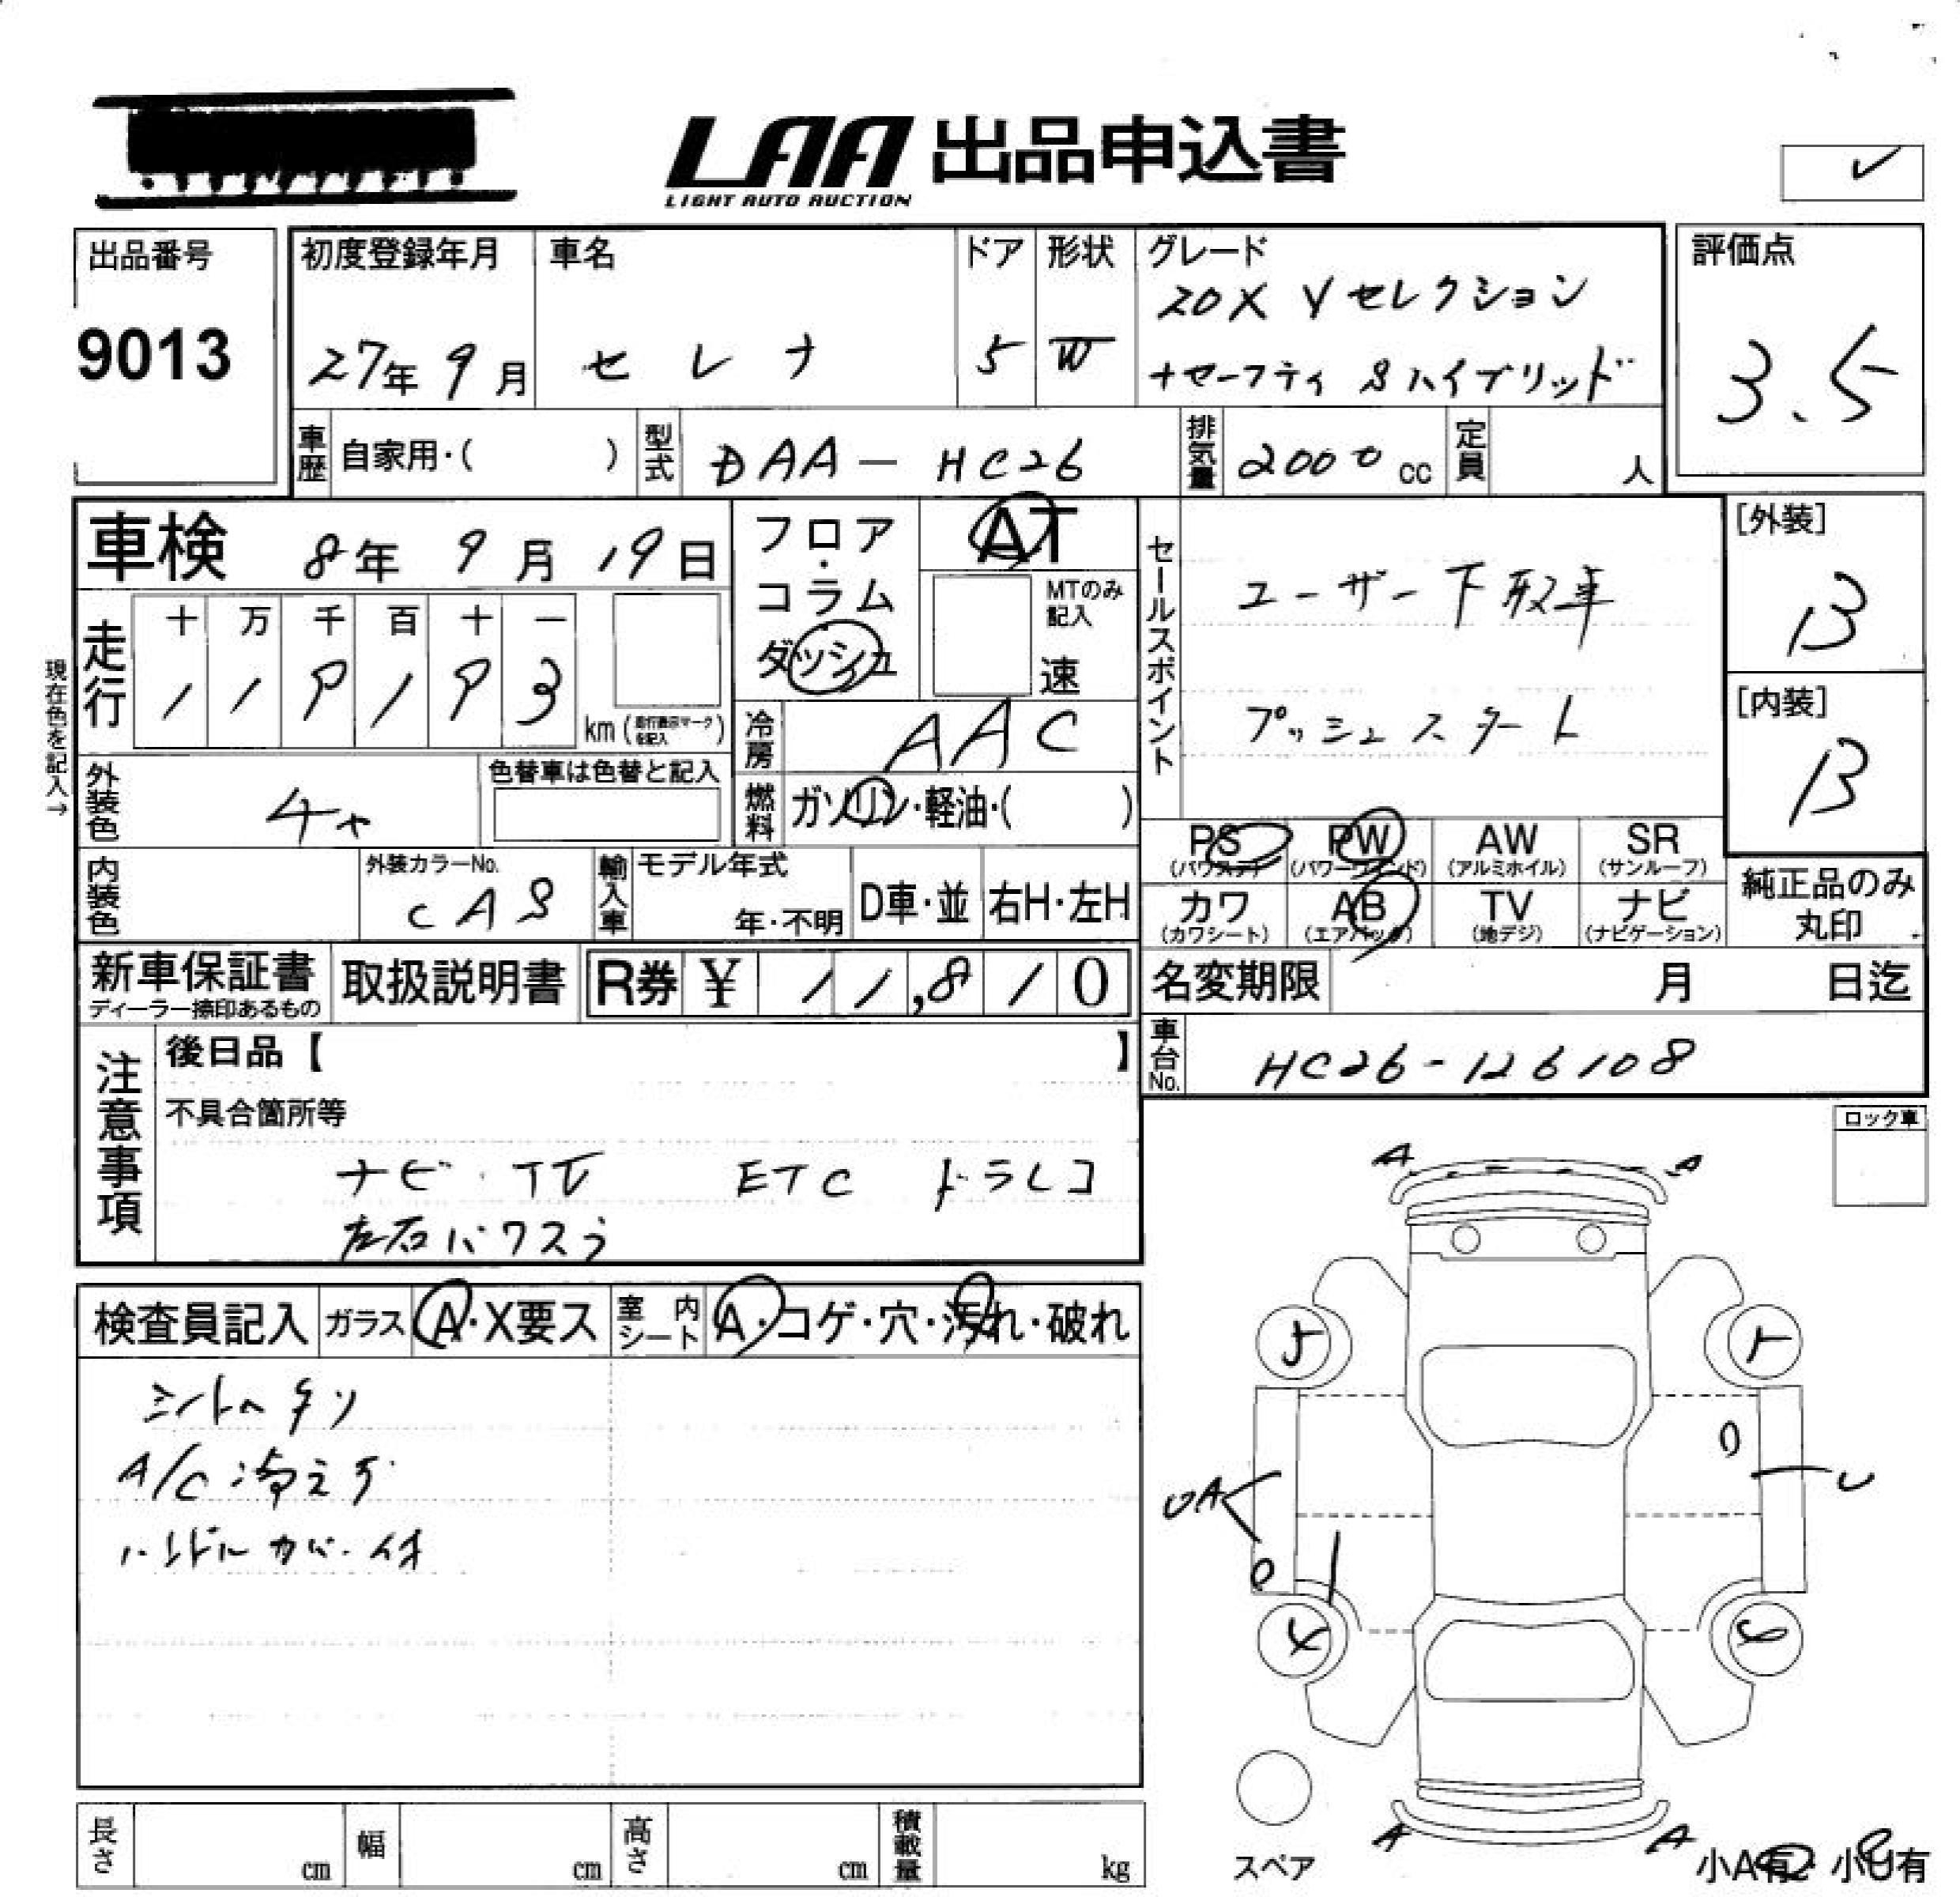 LAA 出品申込書
LIGHT AUTO AUCTION
出品番号
9013
初度登録年月
27年 9月
車名
セレナ
ドア
5
形状
W
グレード
20X Vセレクション
+セーフティ Sハイブリッド
評価点
3.5
車歴
自家用・( )
型式
DAA-HC26
排気量
2000 cc
定員
人
車検 8年 9月 19日
フロア・コラム
ダッシュ
AT
MTのみ記入
速
セールスポイント
ユーザー下取車
プッシュスタート
[外装]
B
[内装]
B
現在色を記入→
走行
十 万 千 百 十 一
1 1 9 1 9 3
km (走行表示マークを記入)
冷房
AAC
外装色
色替車は色替と記入
燃料
ガソリン・軽油・( )
PS (パワステ)
PW (パワーウィンド)
AW (アルミホイル)
SR (サンルーフ)
カワ (カワシート)
AB (エアバッグ)
TV (地デジ)
ナビ (ナビゲーション)
純正品のみ丸印
内装色
外装カラーNo.
CAS
輸入車
モデル年式
年・不明
D車・並
右H・左H
新車保証書
ディーラー捺印あるもの
取扱説明書
R券 ¥ 11,810
名変期限 月 日迄
車台No.
HC26-126108
注意事項
後日品【 】
不具合箇所等
ナビ・TV ETC ドラレコ
左右パワスラ
ロック車
検査員記入
ガラス A・X要ス
室内シート A・コゲ・穴・汚れ・破れ
A/C冷えず
ハンドルカバー付
A A
5
0
UA
U
0
A A
長さ cm
幅 cm
高さ cm
積載量 kg
スペア
小A有・小U有